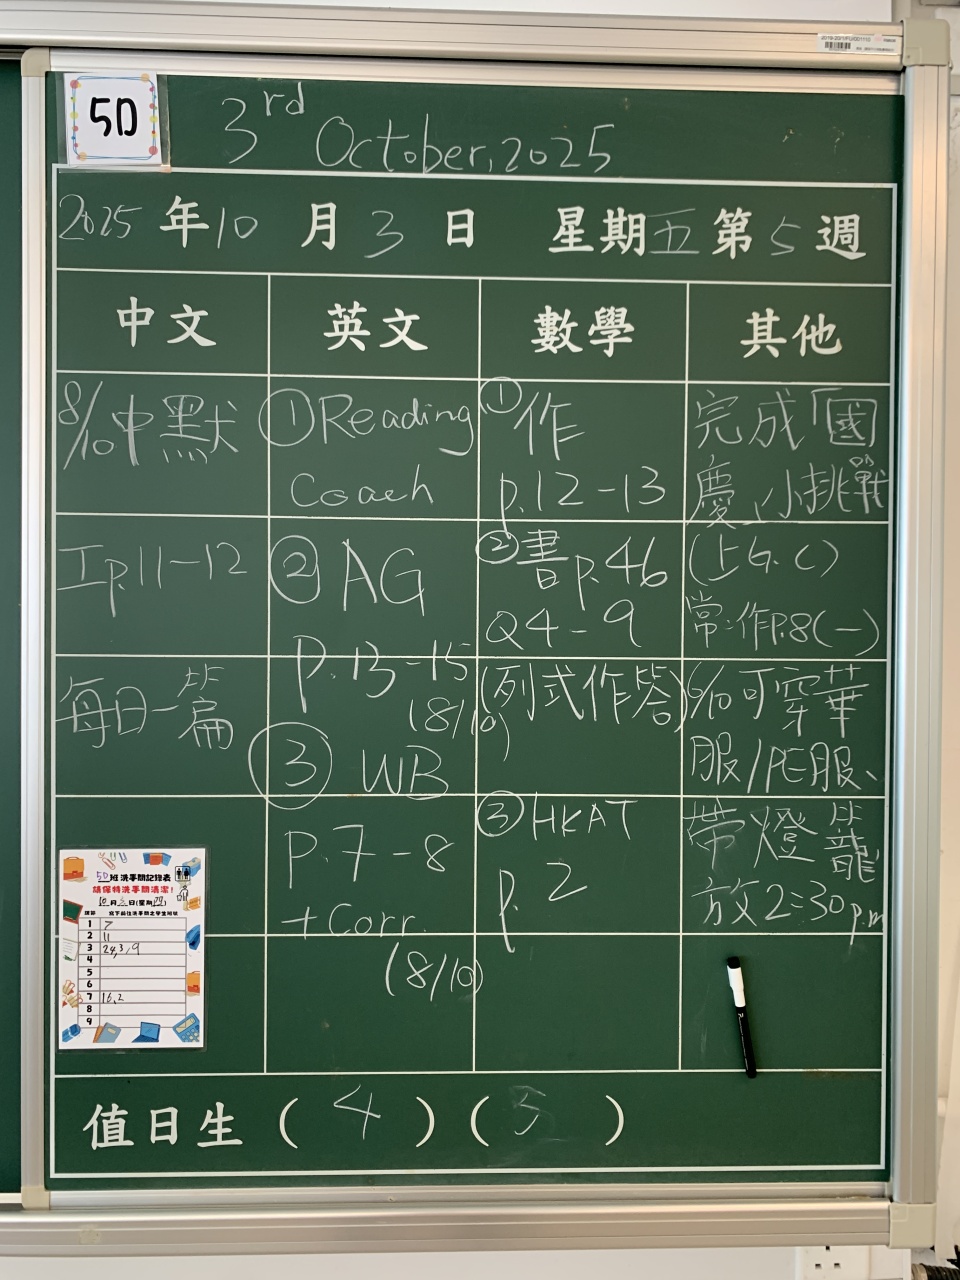 5D
3rd October, 2025
2025年10月3日 星期五第5週
中文 英文 數學 其他
8/10中默
工p.11-12
每日一篇
①Reading
Coach
② AG
p.13-15
(8/10)
③ WB
P.7-8
+Corr.
(8/10)
①作
p.12-13
②書p.46
Q4-9
(列式作答)
③HKAT
p.2
完成「國
慶」小挑戰
(上G.C)
常:作P.8(一)
6/10可穿華
服/PE服、
帶燈籠
放2:30p.m
5D班洗手間記錄表
請保持洗手間清潔!
課節 寫下前往洗手間之學生班號
1 7
2 11
3 24,3,9
4
5
6
7 16,2
8
9
值日生(4)(5)